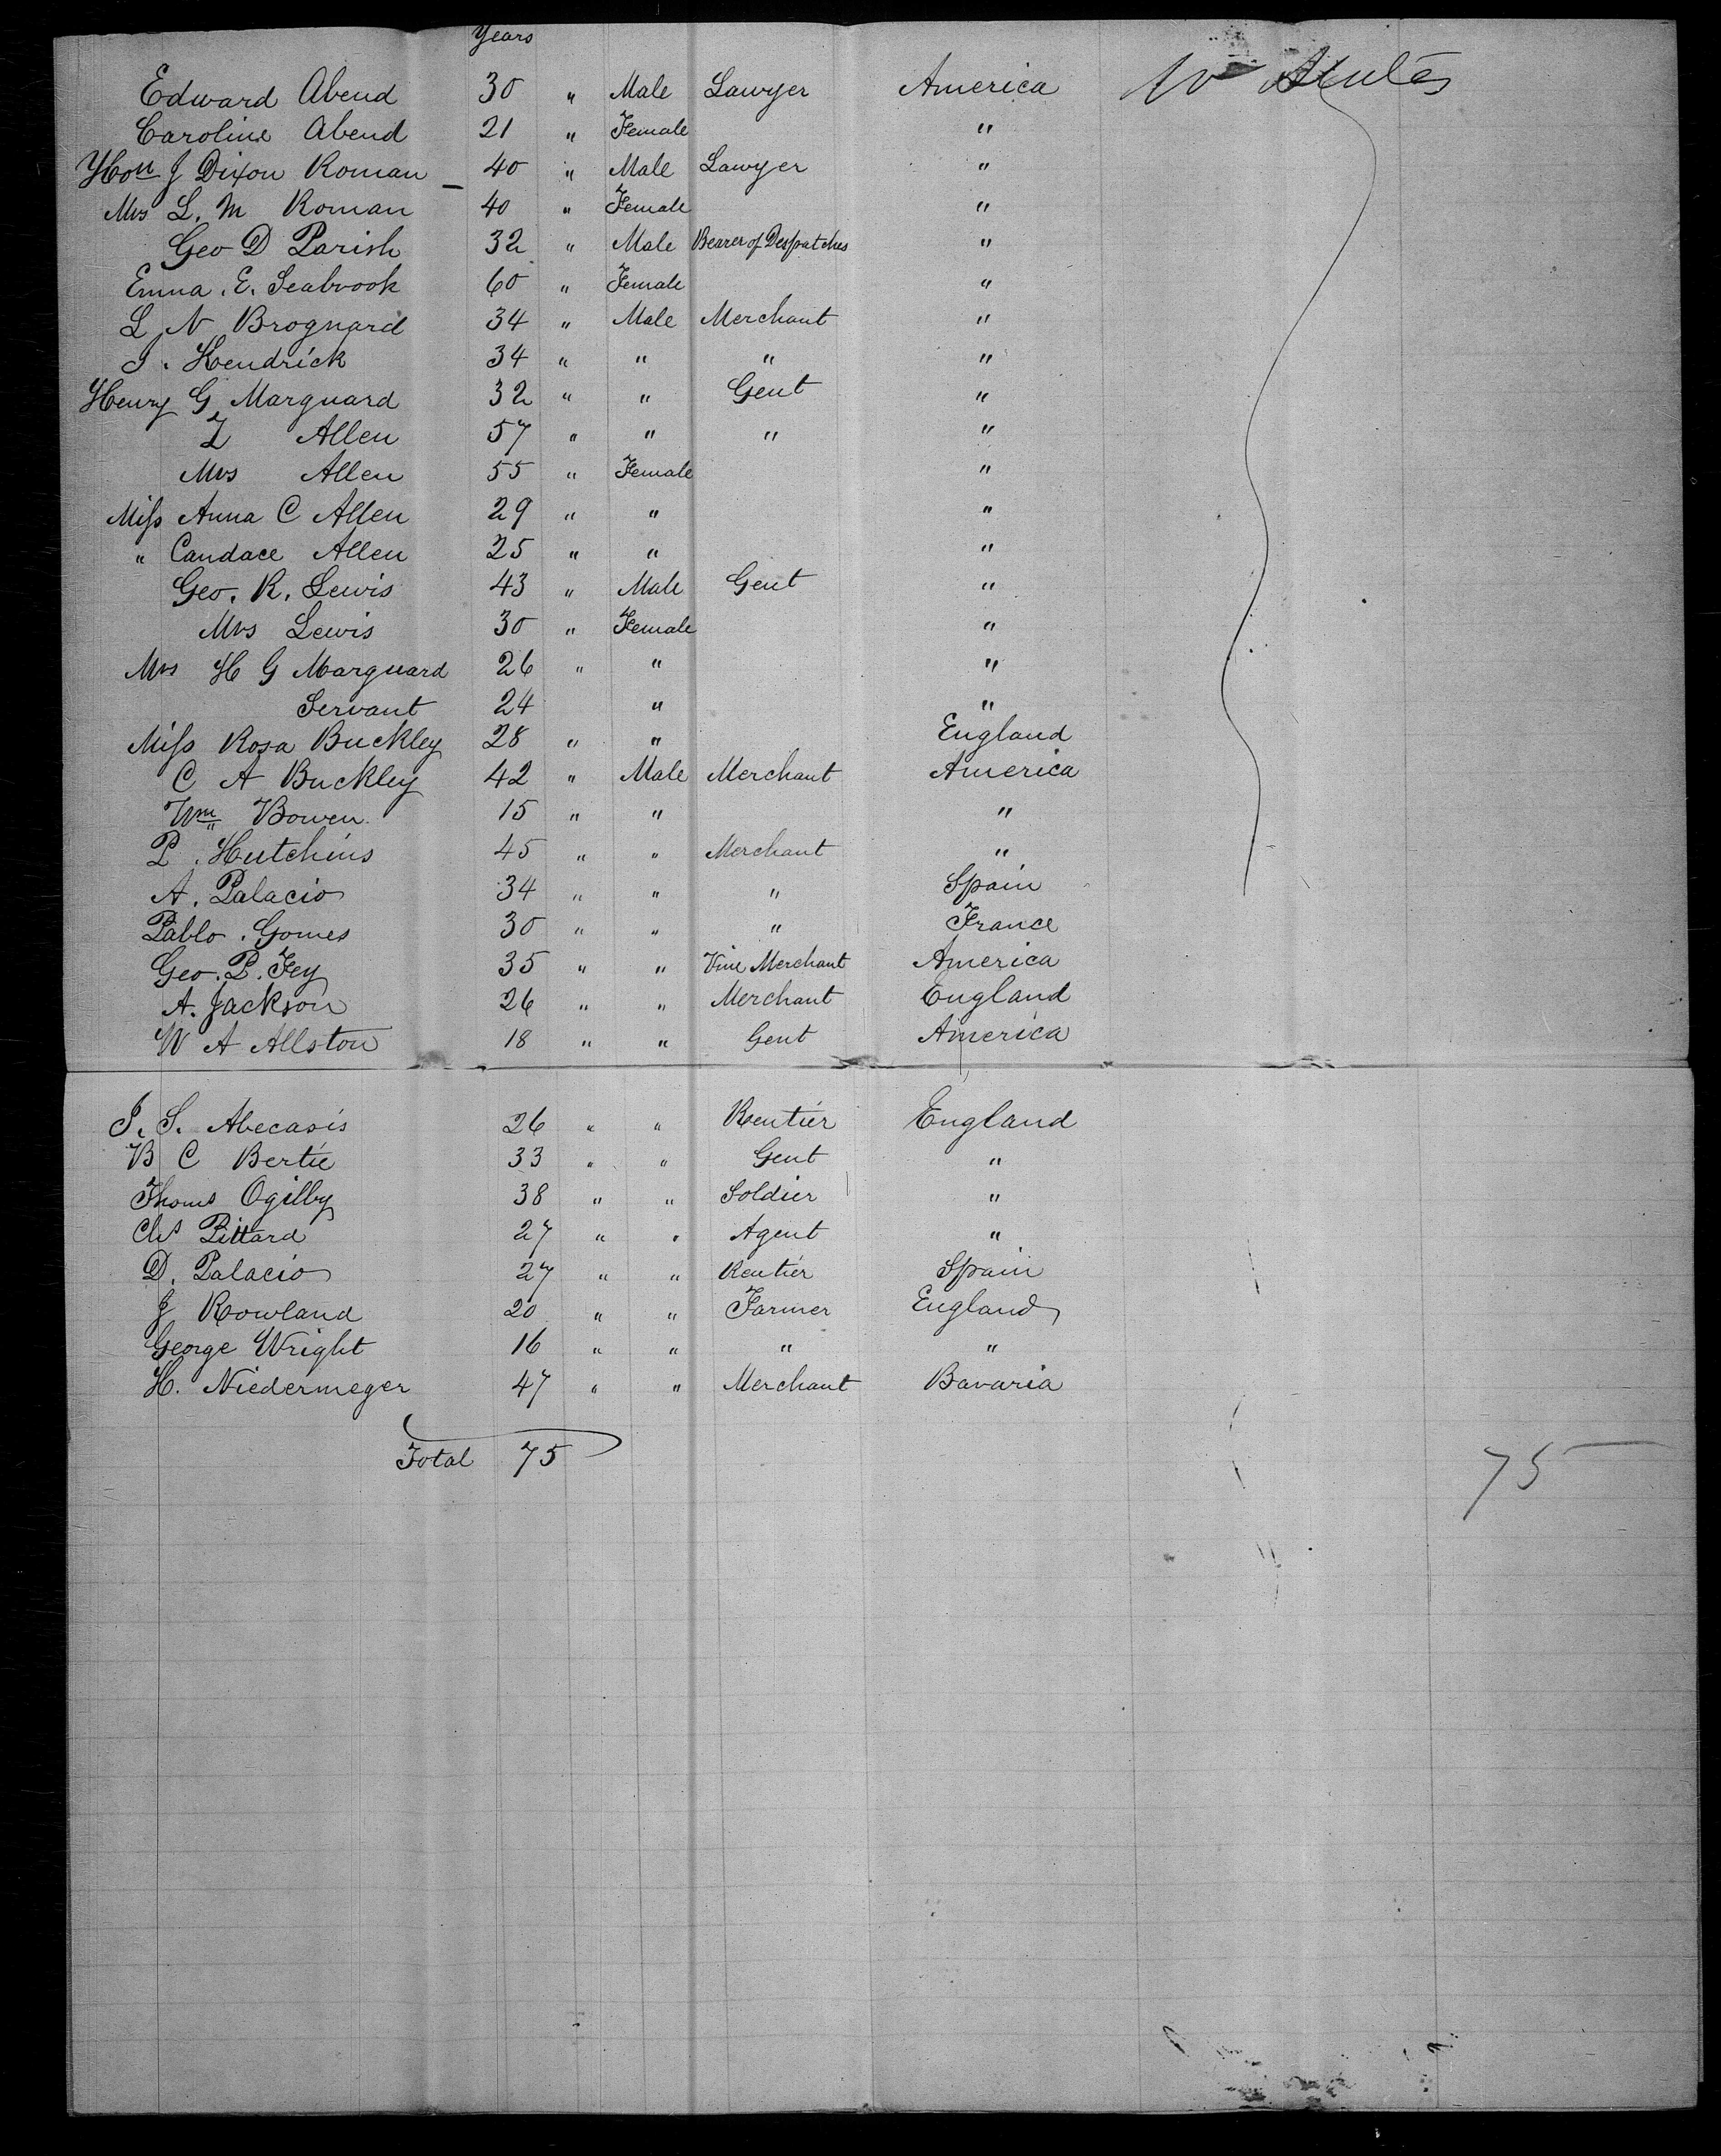 Years
Edward Abend 30 " Male Lawyer America U States
Caroline Abend 21 " Female "
Hon J Dixon Roman 40 " Male Lawyer "
Mrs L. M Roman 40 " Female "
Geo D Parish 32 " Male Bearer of Despatches "
Emma. E. Seabrook 60 " Female "
L N Brognard 34 " Male Merchant "
J. Hendrick 34 " " " "
Henry G Marquard 32 " " Gent "
Z Allen 57 " " " "
Mrs Allen 55 " Female "
Miss Anna C Allen 29 " " "
" Candace Allen 25 " " "
Geo. R. Lewis 43 " Male Gent "
Mrs Lewis 30 " Female "
Mrs H G Marquard 26 " " "
Servant 24 " "
Miss Rosa Buckley 28 " " England
C A Buckley 42 " Male Merchant America
Wm Bowen 15 " " "
P. Hutchins 45 " " Merchant "
A. Palacio 34 " " " Spain
Pablo. Gomes 30 " " " France
Geo. P. Fey 35 " " Vine Merchant America
A. Jackson 26 " " Merchant England
W A Allston 18 " " Gent America
J. S. Abecasis 26 " " Rentier England
B C Bertie 33 " " Gent "
Thoms Ogilby 38 " " Soldier "
Chs Pittard 27 " " Agent "
D. Palacio 27 " " Rentier Spain
J Rowland 20 " " Farmer England
George Wright 16 " " " "
H. Niedermeger 47 " " Merchant Bavaria
Total 75
75